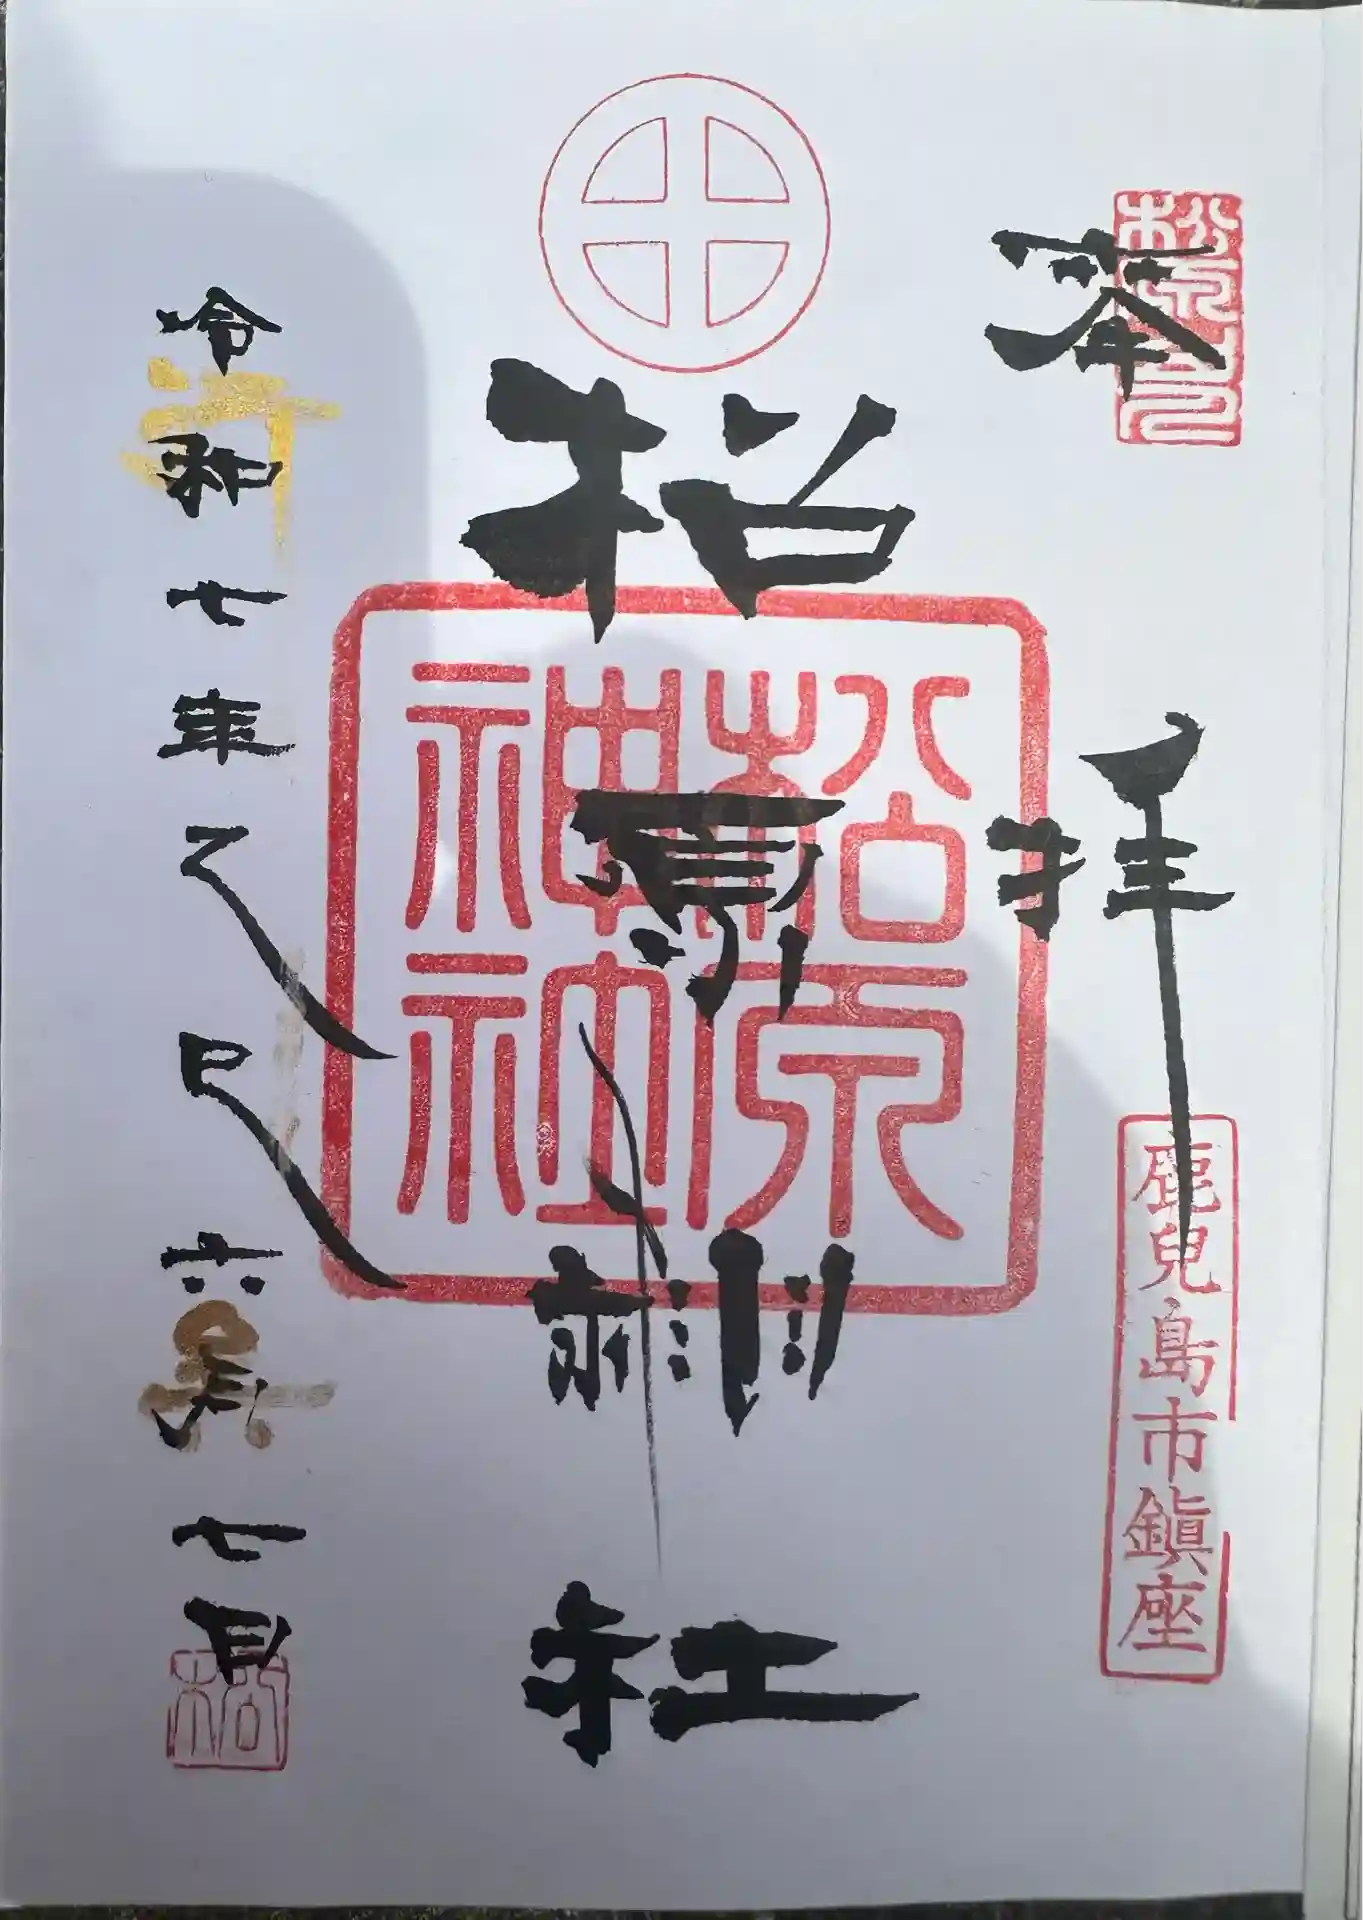 奉拝
鹿兒島市鎮座
松原神社
松原
神社
令和七年乙巳六月七日
松